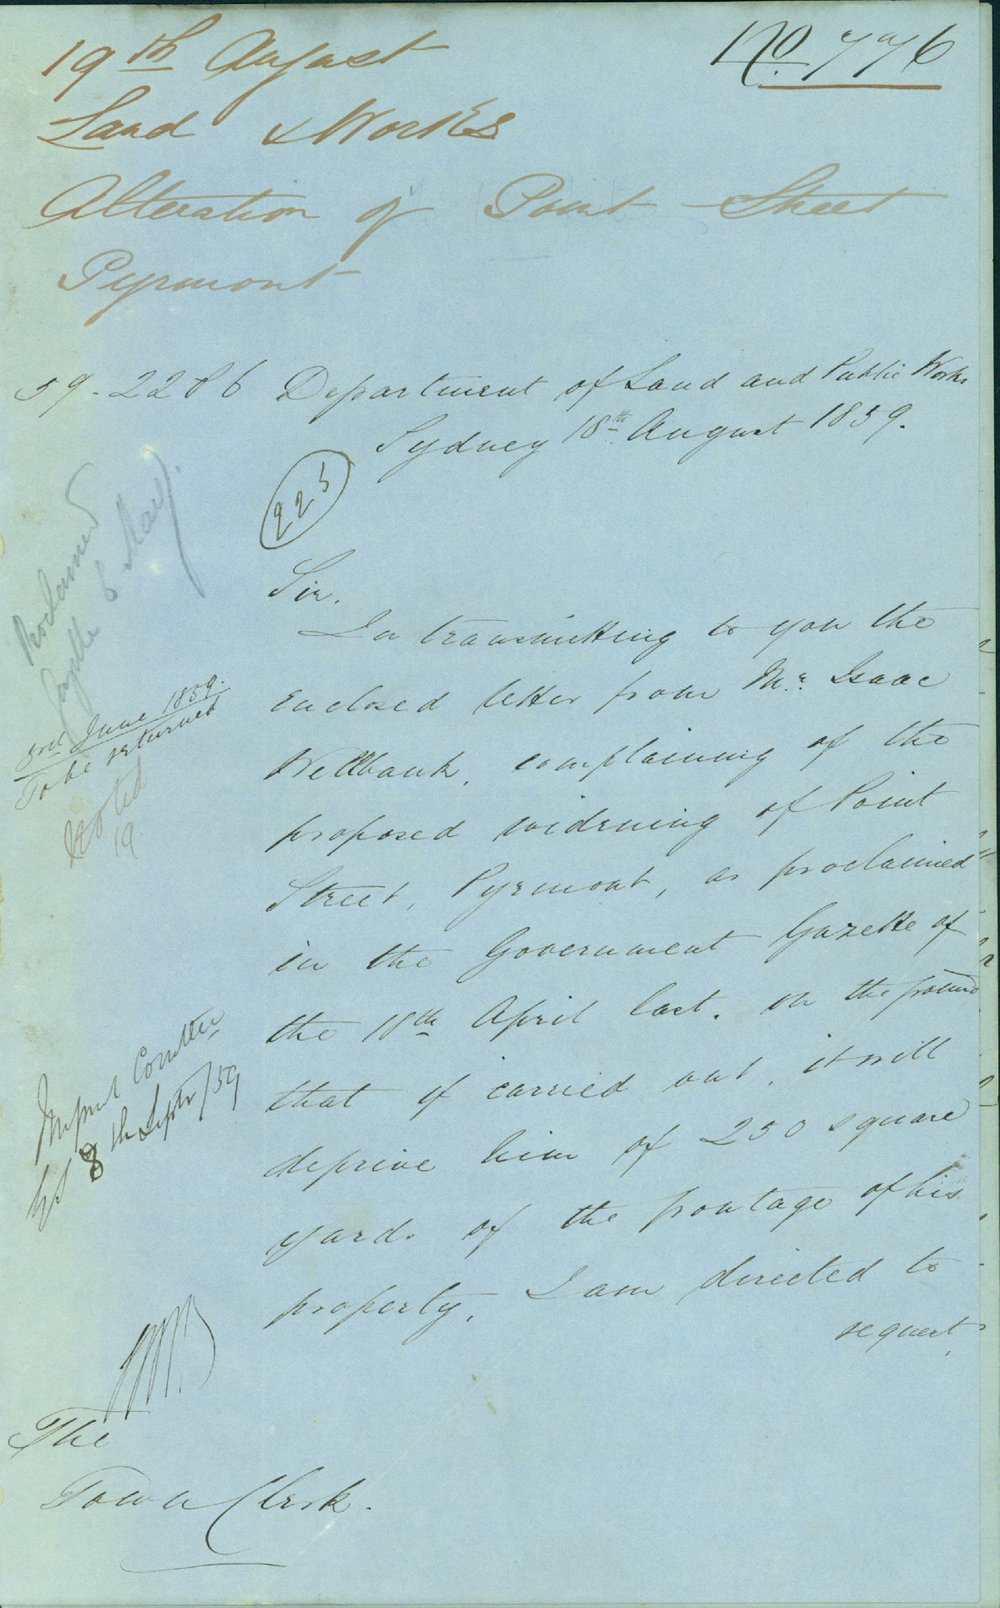 19th August
No. 776
Land & Works
Alteration of Point Street
Pyrmont
59-2286 Department of Land and Public Works
Sydney 18th August 1859.
225
Sir.
In transmitting to you the
enclosed letter from Mr. Isaac
Wellbank, complaining of the
proposed widening of Point
Street, Pyrmont, as proclaimed
in the Government Gazette of
the 18th April last. on the ground
that if carried out, it will
deprive him of 250 square
yards of the frontage of his
property, I am directed to
request,
Proclaimed
Gazette 6 May.
3rd June 1859.
To be returned
Noted
19
Improt Comttee
8th Septr/59
The
Town Clerk.